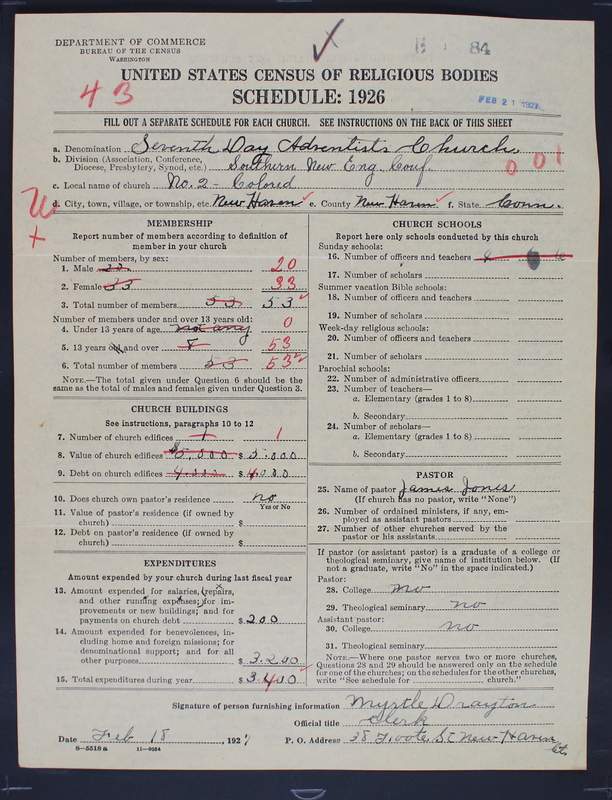 DEPARTMENT OF COMMERCE
BUREAU OF THE CENSUS
WASHINGTON
84
UNITED STATES CENSUS OF RELIGIOUS BODIES
SCHEDULE: 1926
43
FEB 21 1927
FILL OUT A SEPARATE SCHEDULE FOR EACH CHURCH. SEE INSTRUCTIONS ON THE BACK OF THIS SHEET
a. Denomination Seventh Day Adventists Church
b. Division (Association, Conference, Diocese, Presbytery, Synod, etc.) Southern New Eng. Conf.
001
c. Local name of church No. 2 - Colored
d. City, town, village, or township, etc. New Haven e. County New Haven f. State Conn.
MEMBERSHIP
Report number of members according to definition of
member in your church
Number of members, by sex:
1. Male 20 20
2. Female 33 33
3. Total number of members 53 53
Number of members under and over 13 years old:
4. Under 13 years of age not any 0
5. 13 years old and over 53
6. Total number of members 53 53
NOTE.—The total given under Question 6 should be
same as the total of males and females given under Question 3.
CHURCH BUILDINGS
See instructions, paragraphs 10 to 12
7. Number of church edifices 1 1
8. Value of church edifices $5,000 $5,000
9. Debt on church edifices 4,000 $4000
10. Does church own pastor's residence no
Yes or No
11. Value of pastor's residence (if owned by
church) $
12. Debt on pastor's residence (if owned by
church) $
EXPENDITURES
Amount expended by your church during last fiscal year
13. Amount expended for salaries, repairs,
and other running expenses; for im-
provements or new buildings; and for
payments on church debt $200
14. Amount expended for benevolences, in-
cluding home and foreign missions; for
denominational support; and for all
other purposes $3200
15. Total expenditures during year $3400
CHURCH SCHOOLS
Report here only schools conducted by this church
Sunday schools:
16. Number of officers and teachers
17. Number of scholars
Summer vacation Bible schools:
18. Number of officers and teachers
19. Number of scholars
Week-day religious schools:
20. Number of officers and teachers
21. Number of scholars
Parochial schools:
22. Number of administrative officers
23. Number of teachers—
a. Elementary (grades 1 to 8)
b. Secondary
24. Number of scholars—
a. Elementary (grades 1 to 8)
b. Secondary
PASTOR
25. Name of pastor James Jones
(If church has no pastor, write "None")
26. Number of ordained ministers, if any, em-
ployed as assistant pastors
27. Number of other churches served by the
pastor or his assistants
If pastor (or assistant pastor) is a graduate of a college or
theological seminary, give name of institution below. (If
not a graduate, write "No" in the space indicated.)
Pastor:
28. College no
29. Theological seminary no
Assistant pastor:
30. College no
31. Theological seminary
NOTE.—Where one pastor serves two or more churches,
Questions 28 and 29 should be answered only on the schedule
for one of the churches; on the schedules for the other churches,
write "See schedule for church."
Signature of person furnishing information Myrtle Drayton
Official title Clerk
Date Feb 18, 1927 P. O. Address 38 Foote St New Haven Ct.
8—5518 a 11—9054